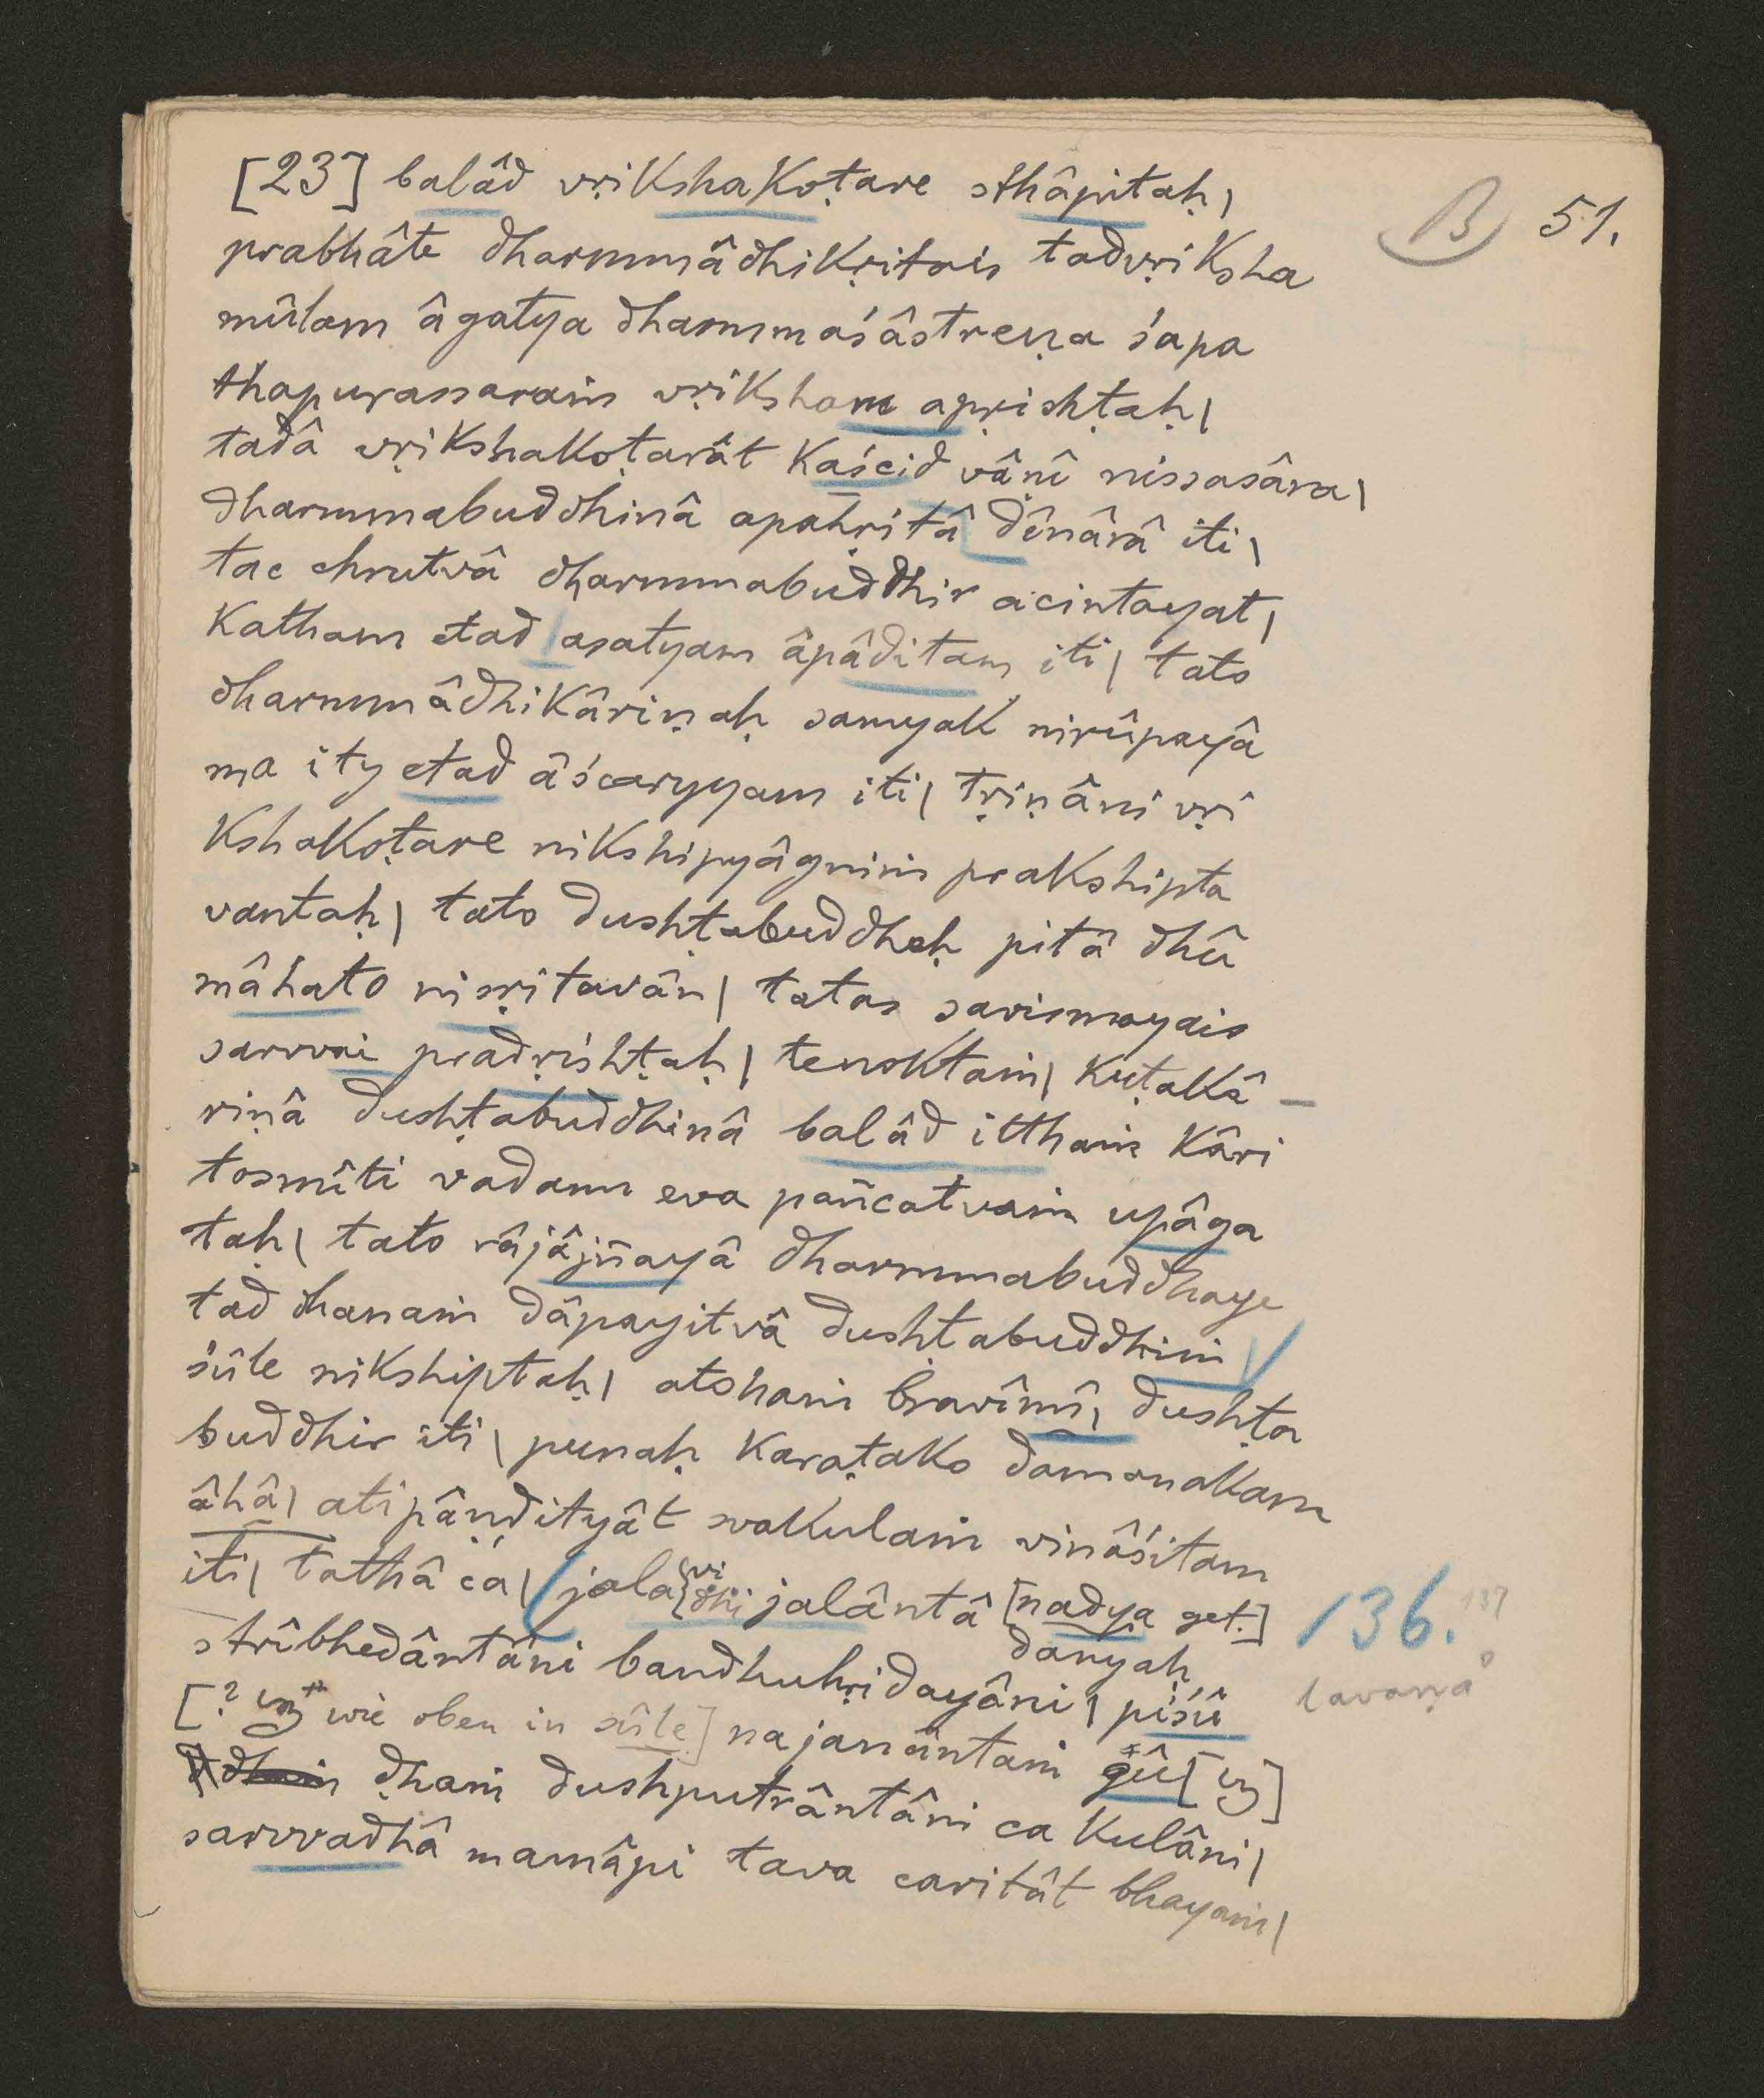 B 51.
[23] balâd vṛikshakoṭare sthâpitaḥ|
prabhâte dharmmâdhikṛitais tadvṛiksha
mûlam âgatya dharmmaśâstreṇa śapa
thapurassaraṁ vṛiksham apṛishṭaḥ|
tadâ vṛikshakoṭarât kaścid vânî nissasâra|
dharmmabuddhinâ apahṛitâ dînârâ iti|
tac chrutvâ dharmmabuddhir acintayat|
katham etad asatyam âpâditam iti| tato
dharmmâdhikâriṇaḥ samyak nirûpayâ
ma ity etad âścaryyam iti| tṛiṇâni vṛi
kshakoṭare nikshipyâgniṁ prakshipta
vantaḥ| tato dushṭabuddheḥ pitâ dhû
mâhato nisṛitavân| tatas savismayais
sarvvai pradṛishṭaḥ| tenoktaṁ| kuṭakâ –
riṇâ dushṭabuddhinâ balâd itthaṁ kâri
tosmîti vadann eva pañcatvaṁ upâga
taḥ| tato râjâjñayâ dharmmabuddhaye
tad dhanaṁ dâpayitvâ dushṭabuddhiṁ
śûle nikshiptaḥ| atohaṁ bravîmî, dushṭa
buddhir iti| punaḥ karaṭako damanakam
âhâ| atipâṇḍityât svakulaṁ vinâśitam
iti| tathâ ca| jala{vi dhi jalântâ [nadya get.] 136. 137
danyaḥ
strîbhedântâni bandhuhṛidayâni| piśû lavaṇa°
[? wie oben in śûle] na janântaṁ gû [ ]
dhaṁ dushputrântâni ca kulâni|
sarvvadhâ mamâpi tava caritât bhayaṁ|